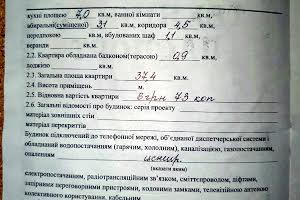 кухні площею 7,0 кв.м, ванної кімнати кв.м,
вбиральні(суміщеної) 3,1 кв.м, коридора 4,5 кв.м,
передпокою кв.м, вбудованих шаф 1,1 кв.м,
веранди кв.м.
2.2. Квартира обладнана балконом(терасою) 0,9 кв.м,
лоджією кв.м.
2.3. Загальна площа квартири 37,4 кв.м.
2.4. Висота приміщень м.
2.5. Відновна вартість квартири 6 грн 73 коп
2.6. Загальні відомості про будинок: серія проекту
матеріал зовнішніх стін
матеріал перекриттів
Будинок підключений до телефонної мережі, об'єднаної диспетчерської системи і
обладнаний водопостачанням (гарячим, холодним), каналізацією, газопостачанням,
опаленням центр.
(вказати яким)
електропостачанням, радіотрансляційним зв'язком, сміттєпроводом, ліфтами,
запірними переговорними пристроями, кодовими замками, телевізійною антеною
колективного користування, кабельним